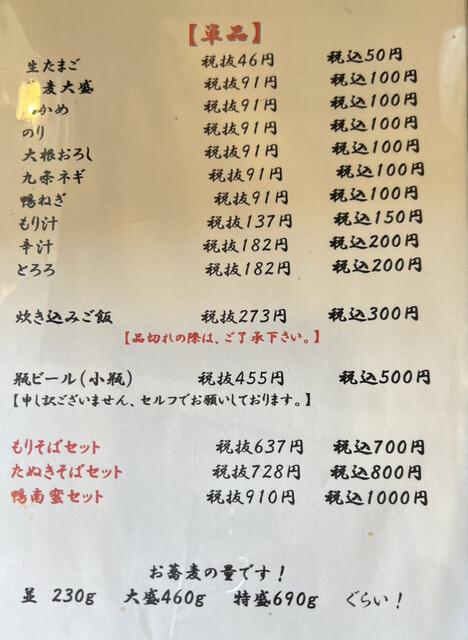 【単品】
生たまご 税抜46円 税込50円
麦大盛 税抜91円 税込100円
かめ 税抜91円 税込100円
のり 税抜91円 税込100円
大根おろし 税抜91円 税込100円
九条ネギ 税抜91円 税込100円
鴨ねぎ 税抜91円 税込100円
もり汁 税抜137円 税込150円
辛汁 税抜182円 税込200円
とろろ 税抜182円 税込200円
炊き込みご飯 税抜273円 税込300円
【品切れの際は、ご了承下さい。】
瓶ビール(小瓶) 税抜455円 税込500円
【申し訳ございません、セルフでお願いしております。】
もりそばセット 税抜637円 税込700円
たぬきそばセット 税抜728円 税込800円
鴨南蛮セット 税抜910円 税込1000円
お蕎麦の量です!
並 230g 大盛460g 特盛690g ぐらい!